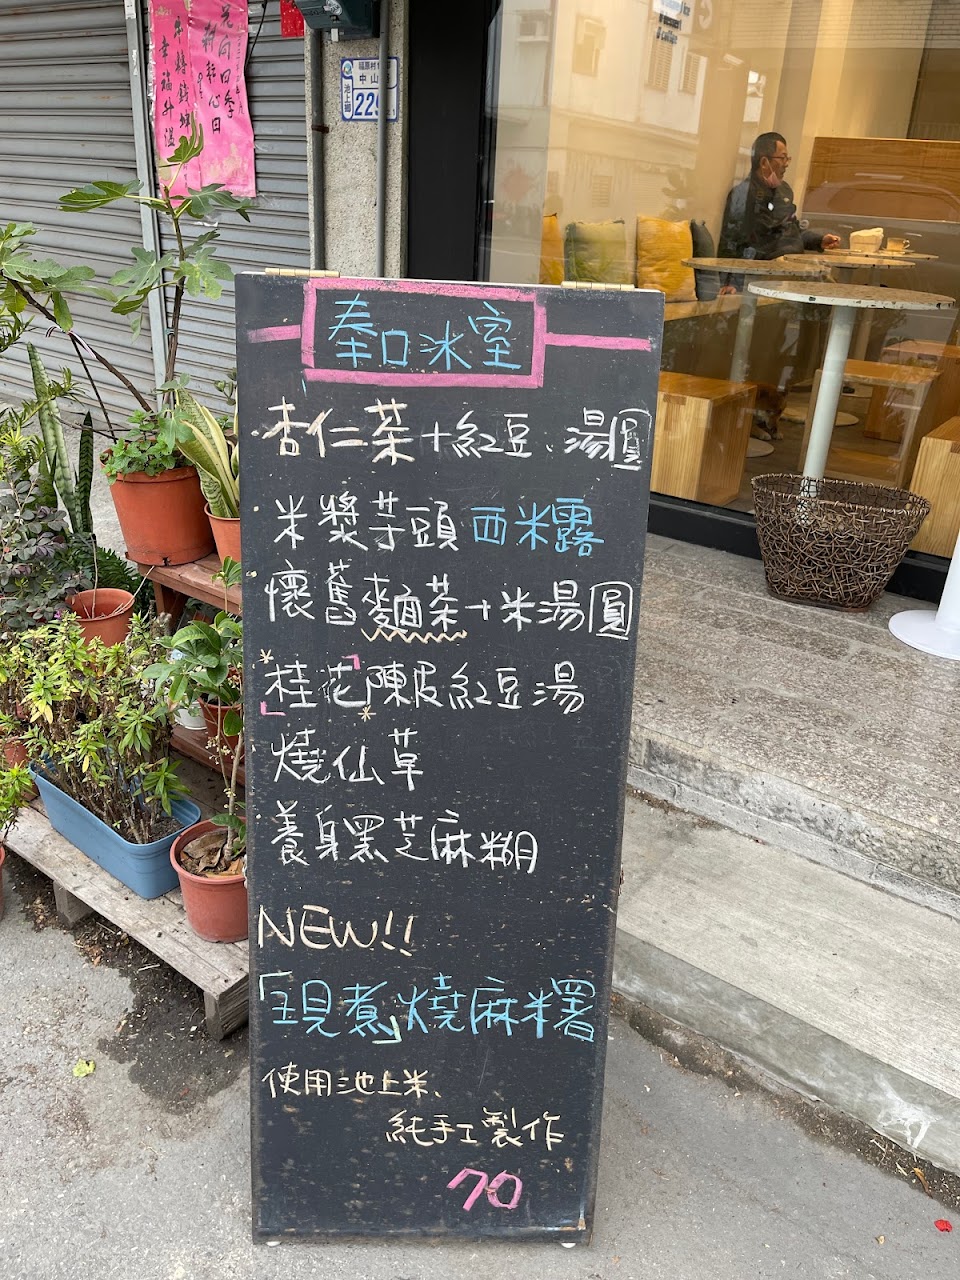 福原村
中山
池上鄉
225
奉口冰室
杏仁茶+紅豆、湯圓
米漿芋頭西米露
懷舊麵茶+米湯圓
「桂花」陳皮紅豆湯
燒仙草
養身黑芝麻糊
NEW!!
「現煮」燒麻糬
使用池上米、
純手工製作
70